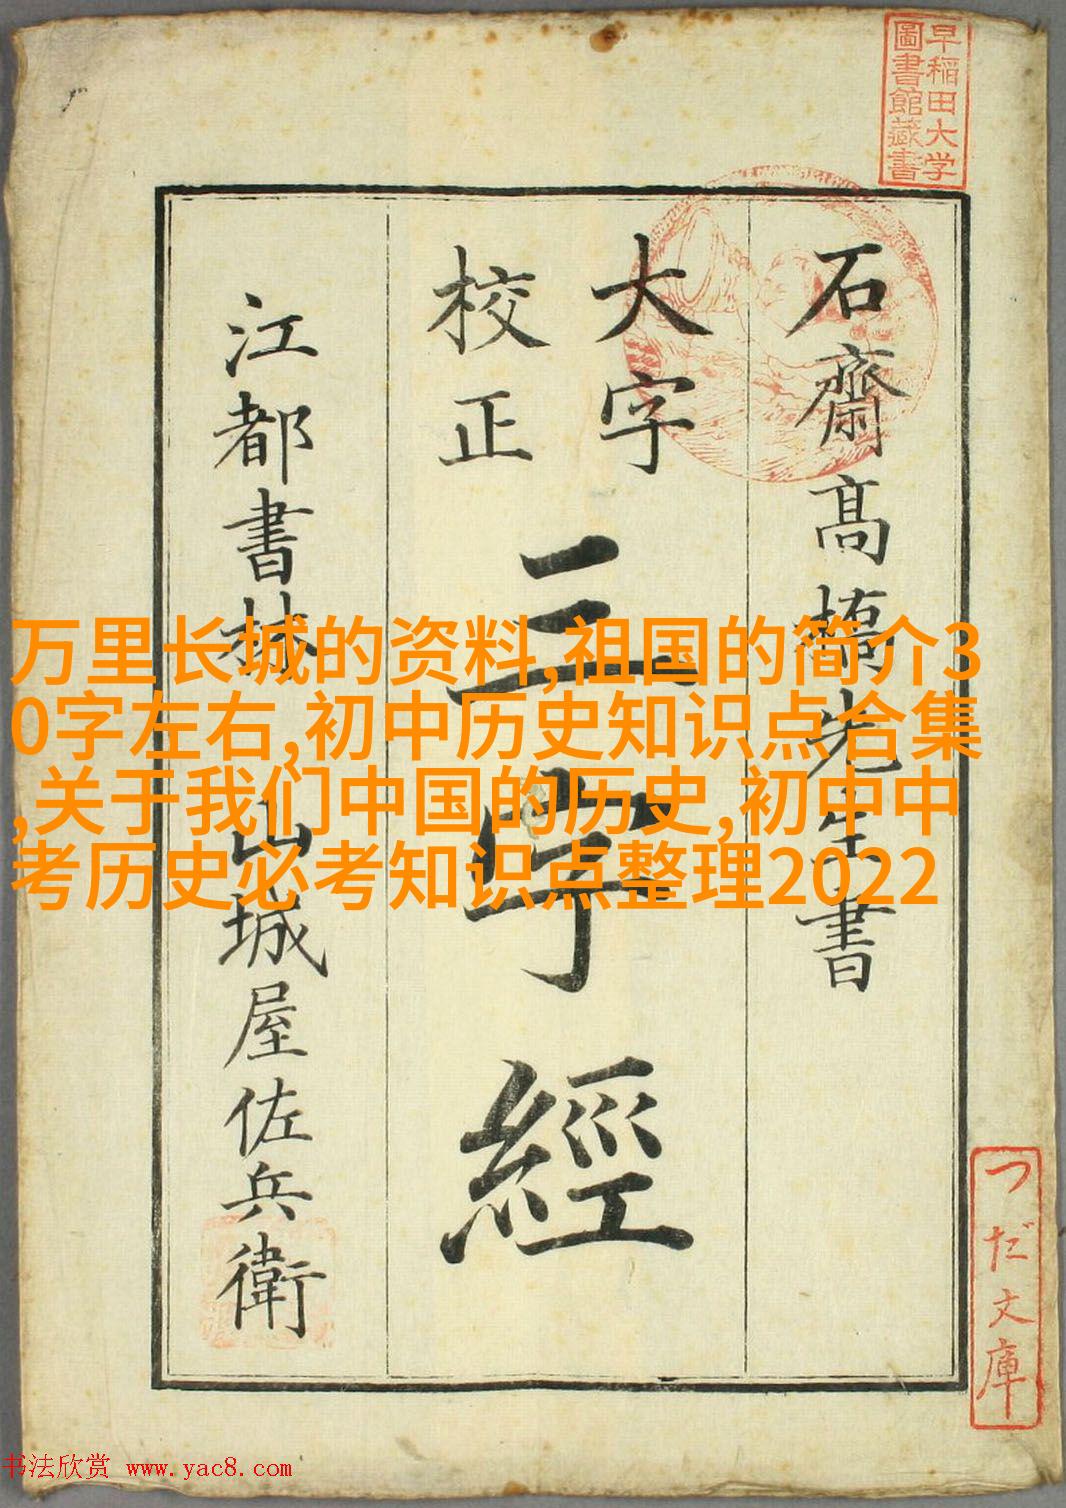 早稲田大学
圖書館藏書
石齋髙槗先生書
大字
校正
三字經
江都書林 山城屋佐兵衛
万里长城的资料,祖国的简介3
0字左右,初中历史知识点合集
,关于我们中国的历史,初中中
考历史必考知识点整理2022
つだ文庫
书法欣赏 www.yac8.com